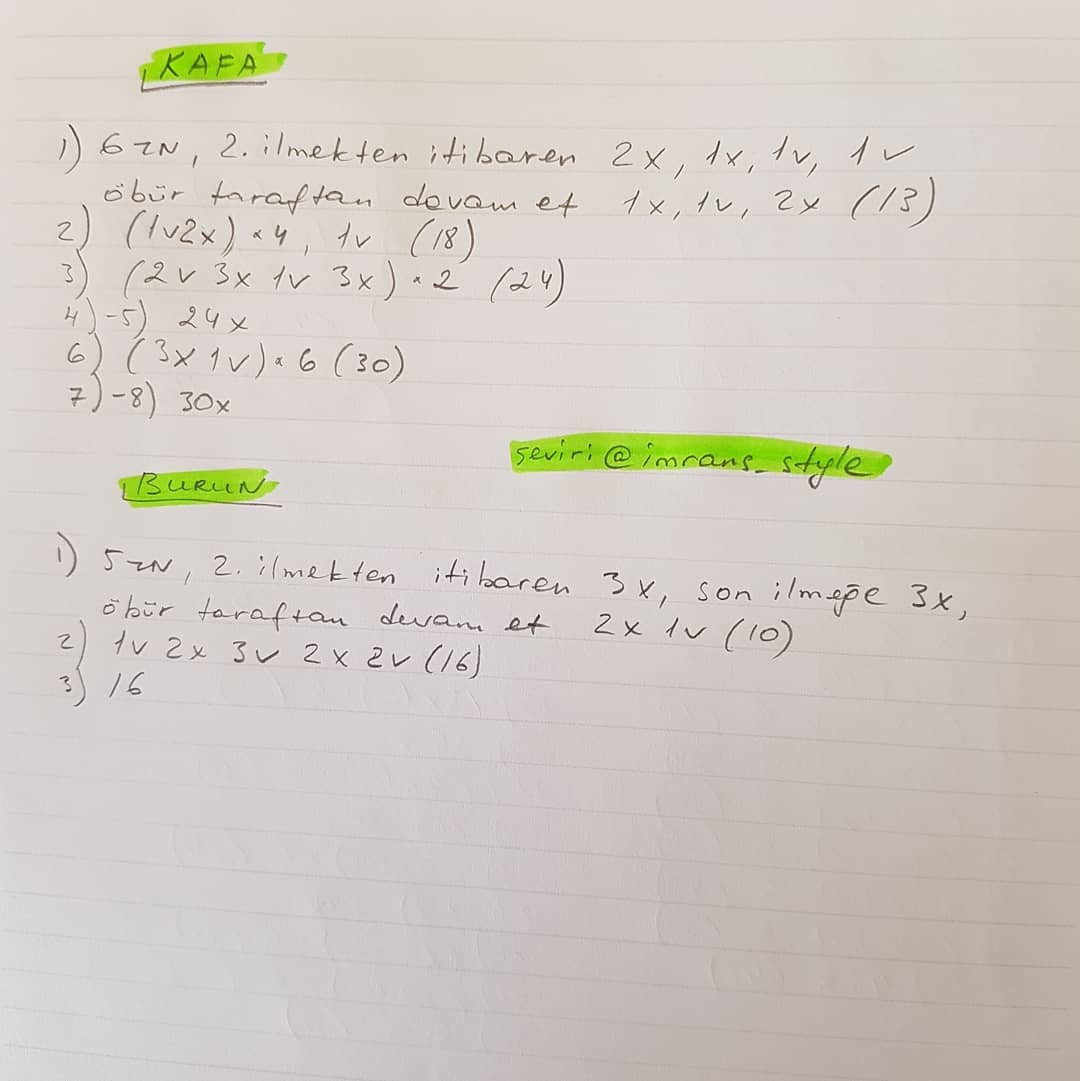 KAFA
1) 6 ZN, 2. ilmekten itibaren 2x, 1x, 1v, 1v
öbür taraftan devam et 1x, 1v, 2x (13)
2) (1v2x) × 4, 1v (18)
3) (2v 3x 1v 3x) × 2 (24)
4)-5) 24x
6) (3x 1v) × 6 (30)
7)-8) 30x
seviri @imrans_style
BURUN
1) 5 ZN, 2. ilmekten itibaren 3x, son ilmeğe 3x,
öbür taraftan devam et 2x 1v (10)
2) 1v 2x 3v 2x 2v (16)
3) 16